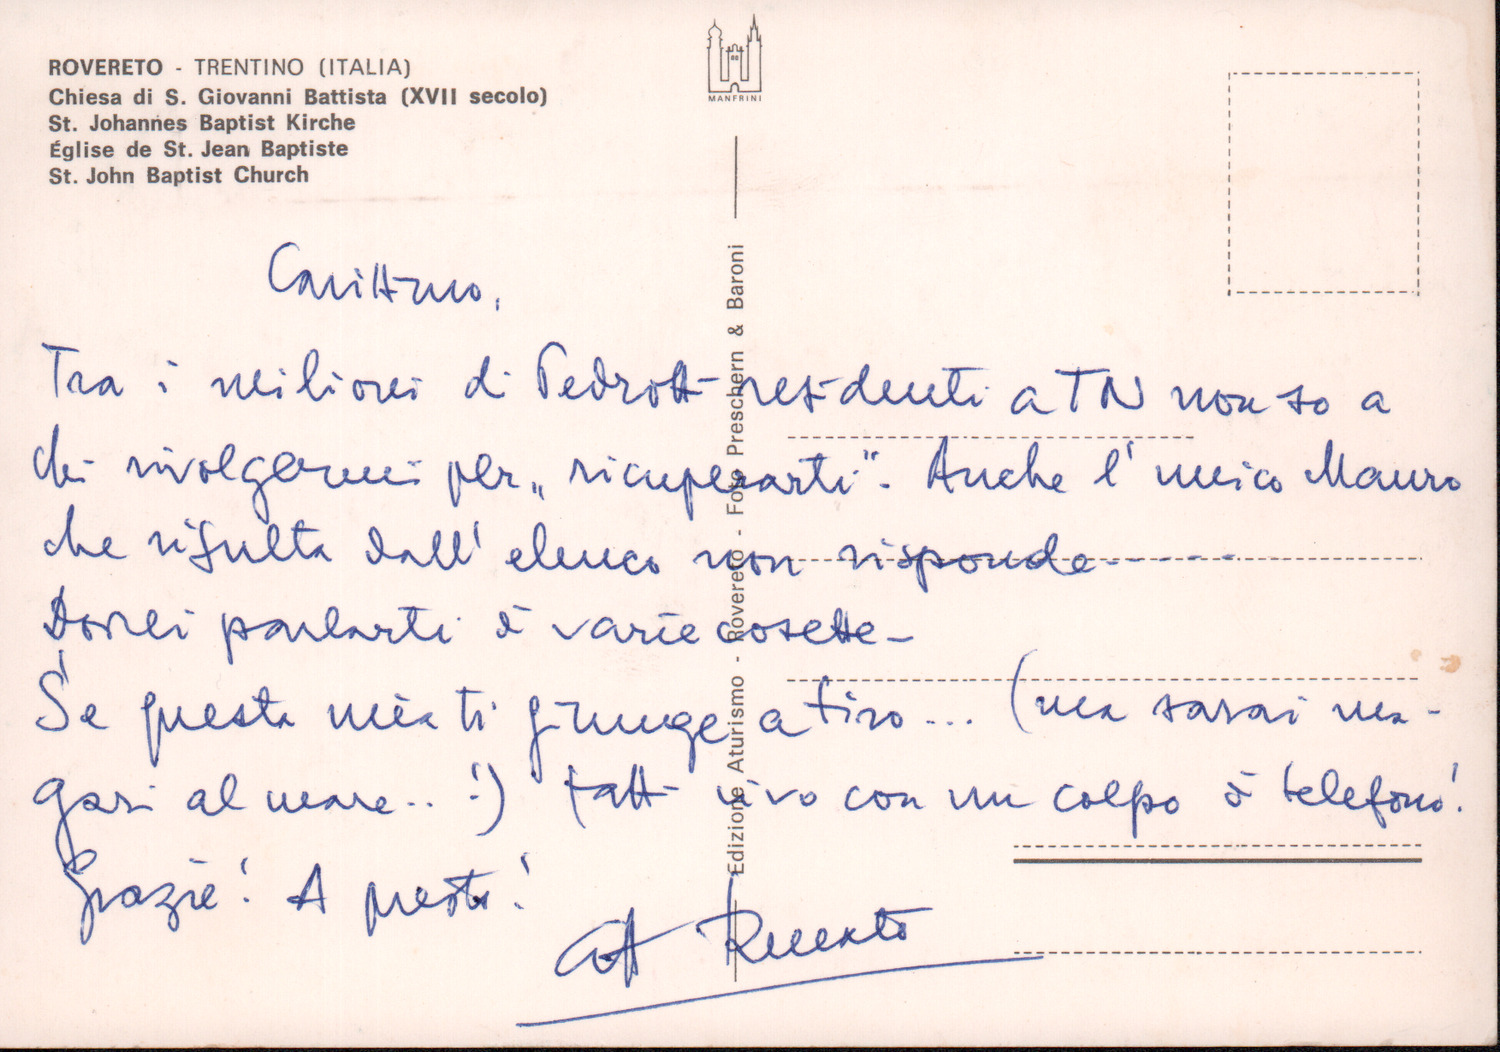 ROVERETO - TRENTINO (ITALIA)
Chiesa di S. Giovanni Battista (XVII secolo)
St. Johannes Baptist Kirche
Église de St. Jean Baptiste
St. John Baptist Church
MANFRINI
Edizione Aturismo - Rovereto - Foto Preschern & Baroni
Carissimo,
Tra i milioni di Pedrotti residenti a TN non so a
chi rivolgermi per „ricuperarti". Anche l'unico Mauro
che risulta dall'elenco non risponde------
Dovrei parlarti di varie cosette-
Se questa mia ti giunge a tiro... (ma sarai ma-
gari al mare..!) fatti vivo con un colpo di telefono!
Grazie! A presto!
Renato